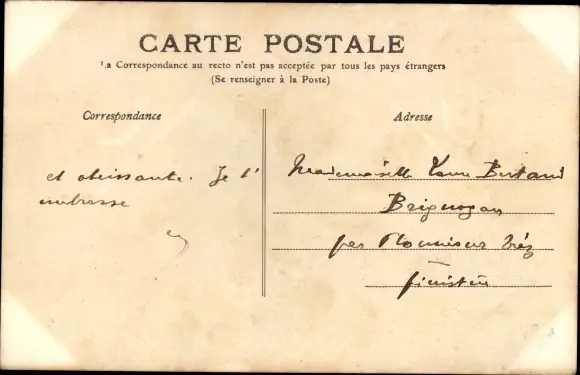 CARTE POSTALE
La Correspondance au recto n'est pas acceptée par tous les pays étrangers
(Se renseigner à la Poste)
Correspondance
Adresse
et obéissante. Je t'
embrasse
Mademoiselle Bertand
Brignogan
par Plouneour Trez
finistère